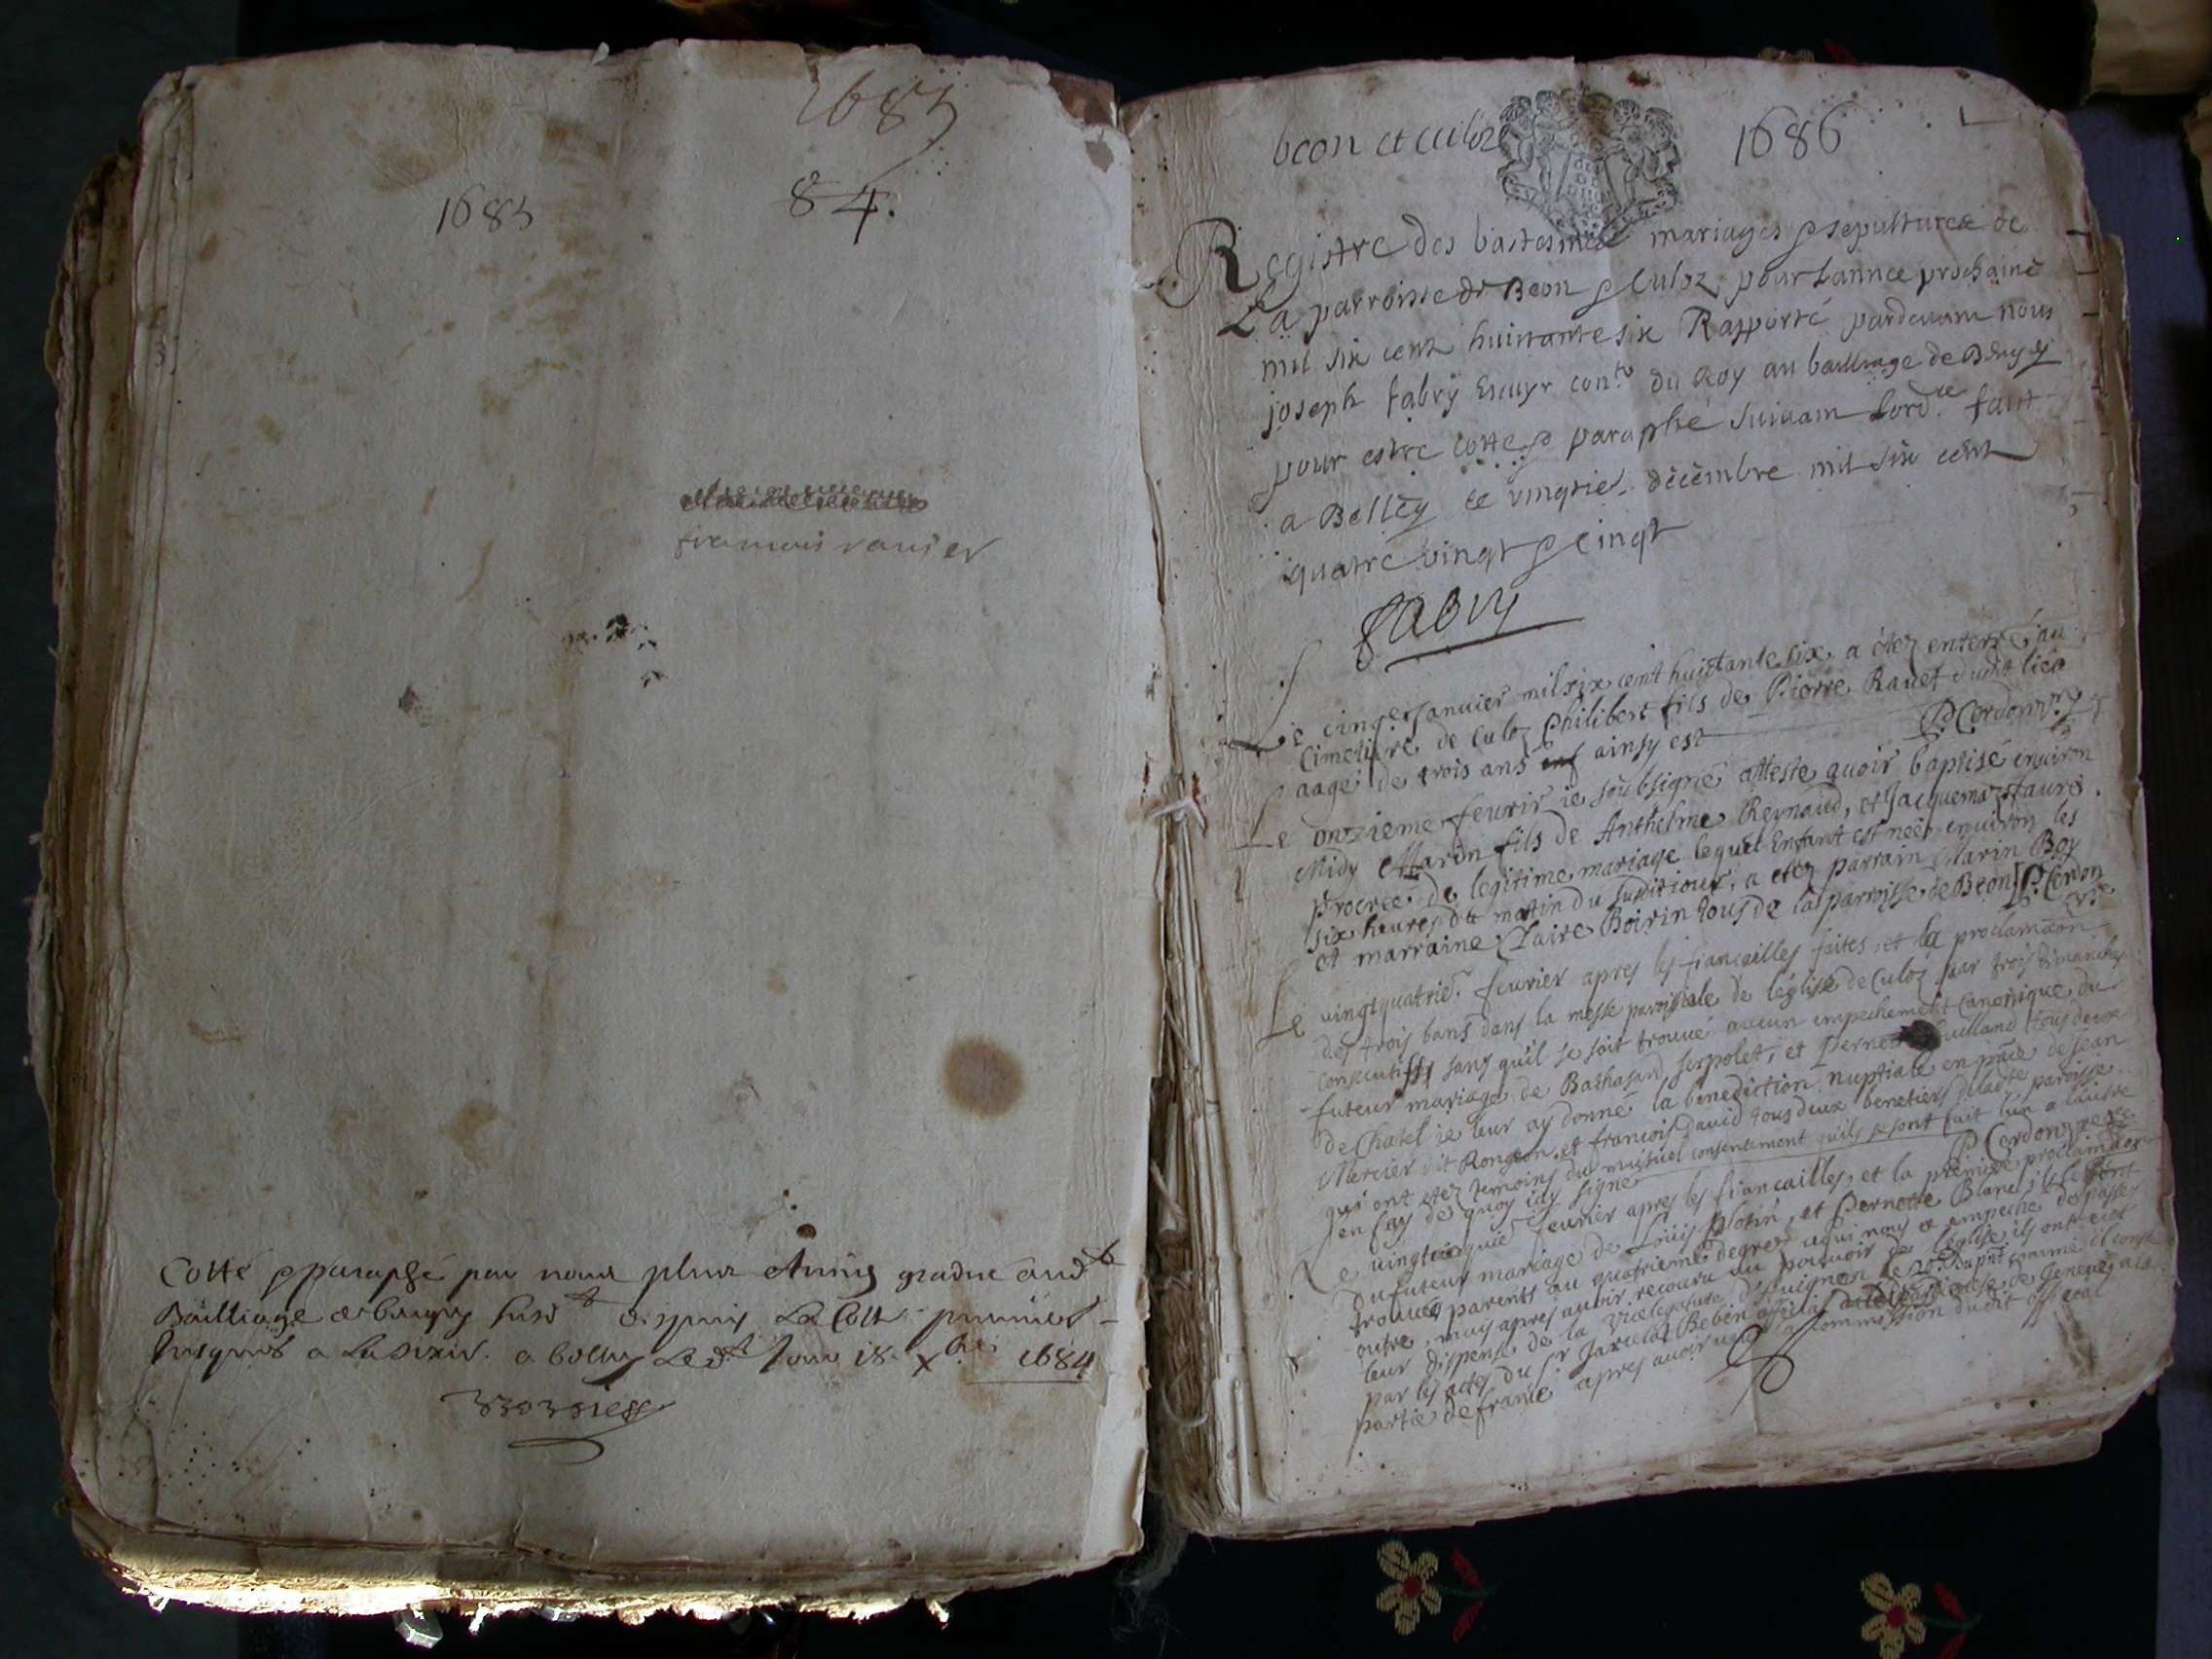 1685
1685
84.
francois ravier
Cotté & paraphé par nous plus antien gradué aud.t
Bailliage de bugey susd.t depuis La Cotte premiere
Jusques a La a belley Led.t Jour 18 Xbre 1684
beon et culoz
1686
Registre des bastesmes mariages & sepultures de
La parroisse de Beon & Culoz pour Lannee prochaine
mil six cent huittante six Rapporté pardevant nous
joseph fabry Escuyr con.er du Roy au bailliage de Bugey
pour estre cotte & paraphé suivant Lord.ce fait
a Belley ce vingtie. décembre mil six cent
quatre vingt & cingt
fabry
Le cinqe Janvier mil six cent huictante six a étez enterré au
Cimetiere de Culoz Philibert fils de Pierre Ravet dudit lieu
aagé de trois ans ainsy est P Cordon v.re
Le onzieme feuvrir ie soubsigné atteste avoir baptisé environ
Midy Marin fils de Anthelme Reynaud, et Jacquemaz faure
procreé de legitime mariage lequel Enfant est neé environ les
six heures du matin du susdit iour, a etez parrain Marin Boy
et marraine Claire Boirin tous de la parroisse de Beon P. Cordon
v.re
Le vingtquatrie.e fevrier apres les fiancailles faites, et la proclamaon
des trois bans dans la messe paroissiale de léglise de Culoz par trois dimanches
consecutifs sans quil se soit trouvé aucun empechement Canonique du
futeur mariage de Balthasard Serpolet, et Pernete tous deux
de Chatel ie leur ay donné la benediction nuptiale en pnce de Jean
Mercier dit Rongeon, et francois David tous deux benetiers de ladte paroisse
qui ont etez temoins du mutuel consentement quils se sont fait lun a lautre
en foy de quoy iay signé P Cordon v.re
Le vingtcinquie fevrier apres les fiancailles, et la premiere proclamaon
du futeur mariage de Louis Plotin, et Pernette Blanc, ils se sont
trouvés parents au quatrieme degrez, a qui nous a empeché de passer
outre, mais apres avoir recouru au pouvoir de léglise ils ont eut
leur dispense de la vicelegature d'avignon le du pnt comme il conste
par les actes du sr Jaxclat Beben official de Geneve a la
partie de france apres avoir la commission dudit official